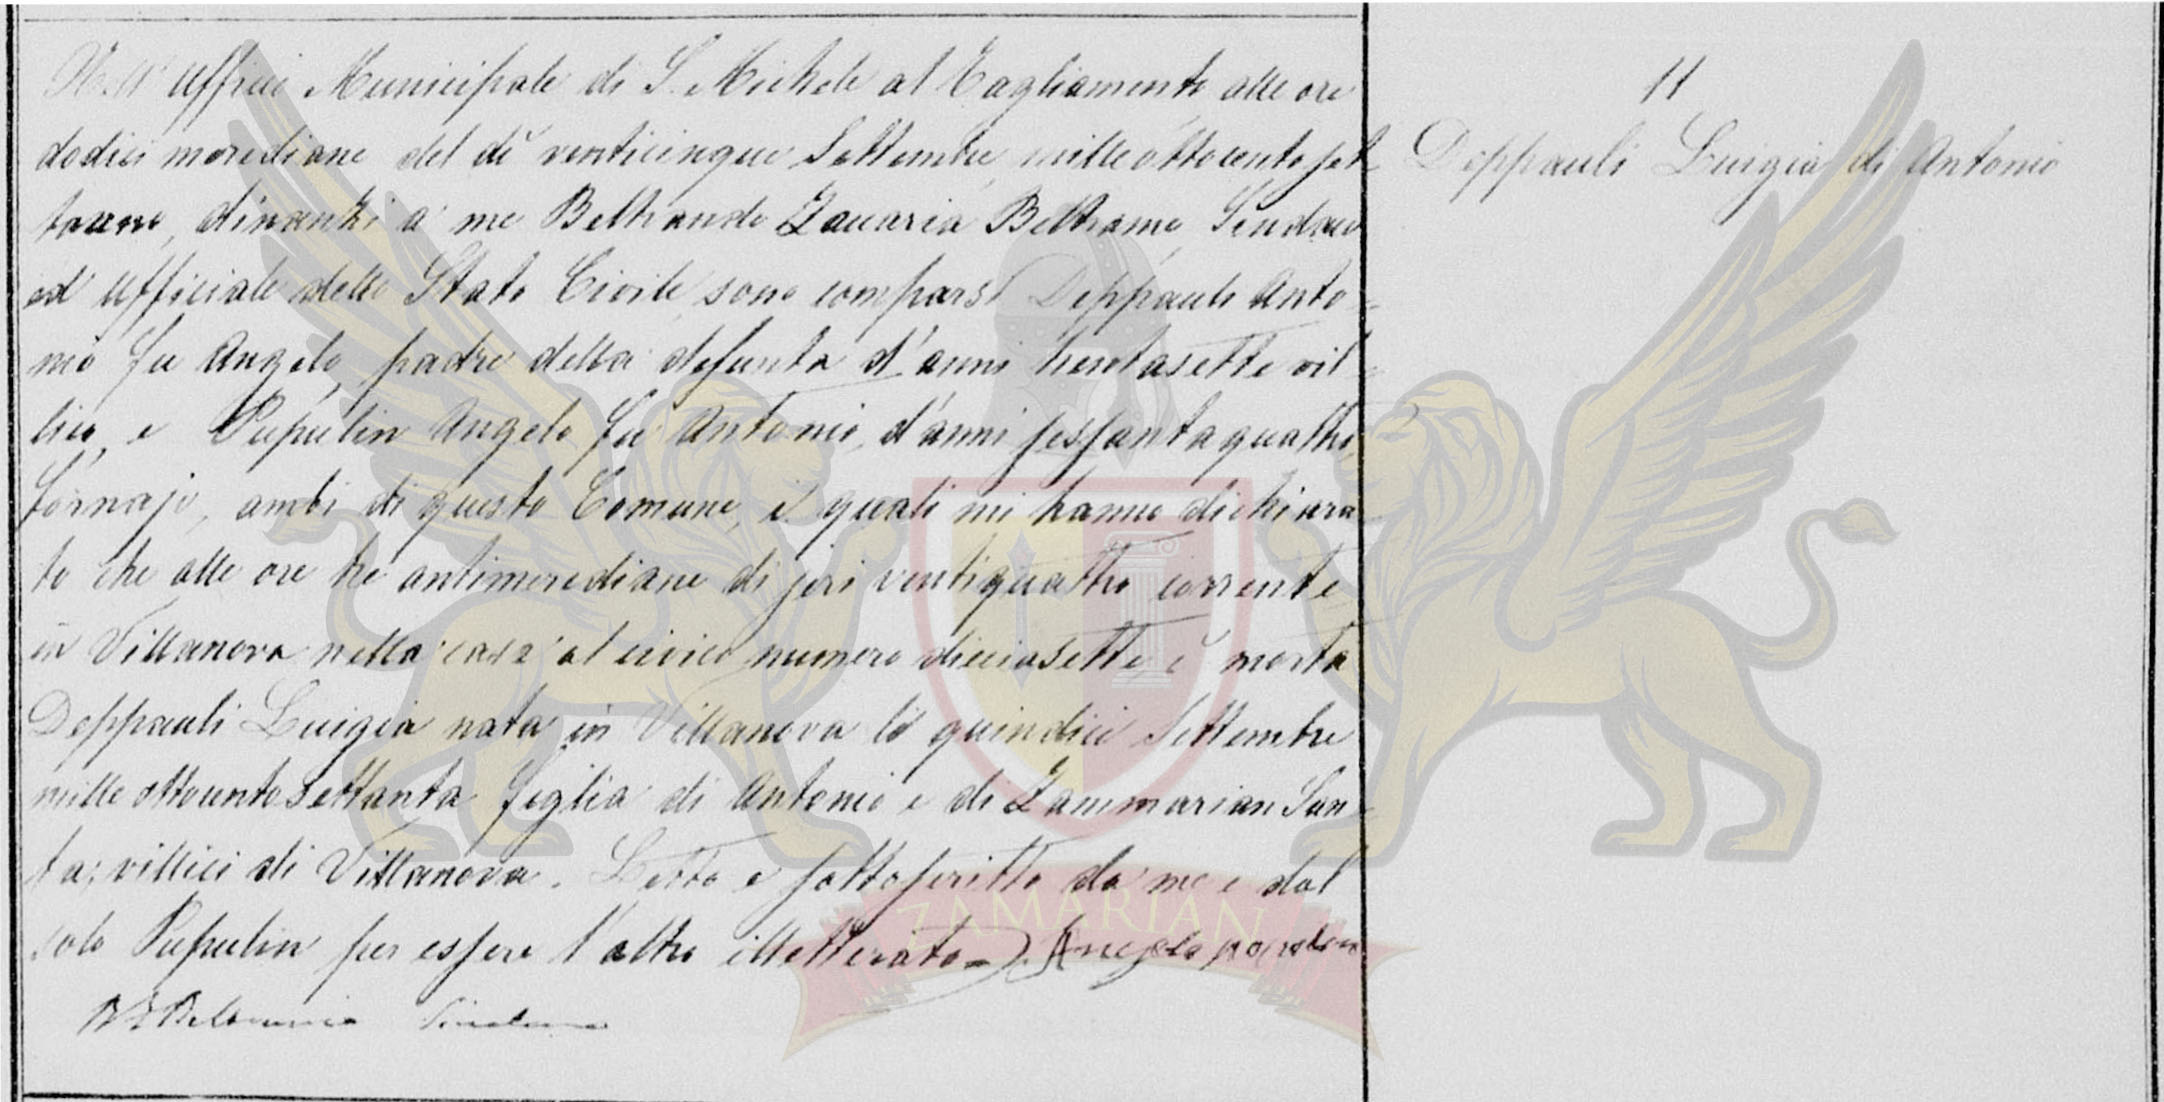 Nell'Ufficio Municipale di S. Michele al Tagliamento alle ore
dodici merediane del dì venticinque Settembre mille ottocento set
tauno, dinanzi a me Beltrando Zaccaria Beltrame Sindaco
ed Ufficiale dello Stato Civile, sono comparsi Deppauli Anto=
nio fu Angelo, padre della defunta d'anni trentasette vil=
lico, e Pupulin Angelo fu Antonio, d'anni sessantaquattro,
fornajo, ambi di questo Comune, i quali mi hanno dichiara
to che alle ore tre antimerediane di jeri ventiquattro corrente
in Villanova nella casa al civico numero diciasette è morta
Deppauli Luigia nata in Villanova li quindici Settembre
mille ottocento settanta figlia di Antonio e di Zammarian San=
ta, villici di Villanova. Letto e sottoscritto da me e dal
solo Pupulin per essere l'altro illetterato= Angelo
B Z Beltrame Sindaco
11
Deppauli Luigia di Antonio
ZAMARIAN